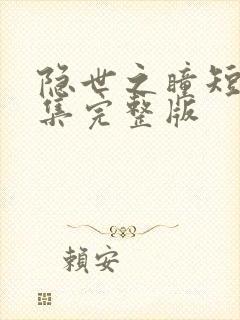 隐世之瞳短
集完整版
赖安